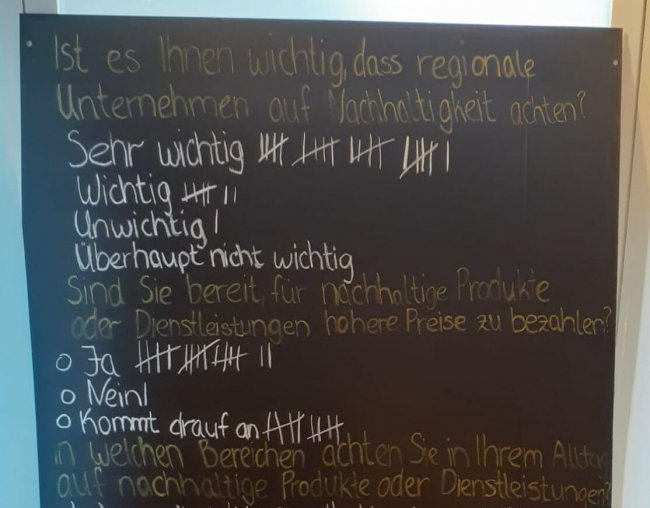 Ist es Ihnen wichtig, dass regionale
Unternehmen auf Nachhaltigkeit achten?
Sehr wichtig 𝍸 𝍸 𝍸 𝍸 |
Wichtig 𝍸 ||
Unwichtig |
Überhaupt nicht wichtig
Sind Sie bereit, für nachhaltige Produkte
oder Dienstleistungen höhere Preise zu bezahlen?
o Ja 𝍸 𝍸 𝍸 ||
o Nein |
o Kommt drauf an 𝍸 𝍸
in welchen Bereichen achten Sie in Ihrem Alltag
auf nachhaltige Produkte oder Dienstleistungen?